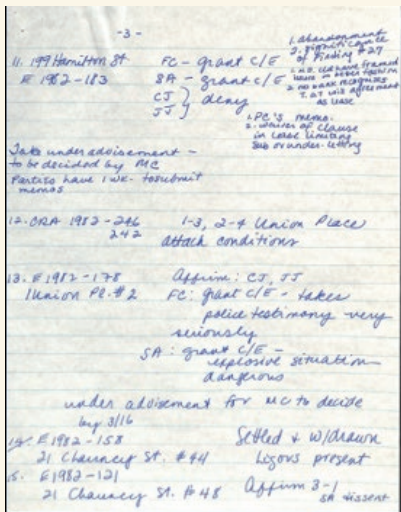 -3-
11. 199 Hamilton St
E 1982-183
FC - grant C/E
SA - grant C/E
CJ } deny
JJ
1. abandonment
2. significance
of Finding #27
have in better fashion
2. no bank recognizes
T. 27 w/s agreement
as lease
1. PC's memo.
2. waiver of clause
in lease limiting
sub or under-letting
Take under advisement -
to be decided by MC
Parties have 1 wk. to submit
memos
12. CRA 1982-246
242
1-3, 2-4 Union Place
attach conditions
13. E1982-178
1 Union Pl. #2
Affirm: CJ, JJ
FC: grant C/E - takes
police testimony very
seriously
SA: grant C/E -
explosive situation
dangerous
under advisement for MC to decide
by 3/16
14. E1982-158
21 Chauncy St. #44
Settled & W/drawn
Ligors present
15. E1982-121
21 Chauncy St. #48
Affirm 3-1
SA dissent